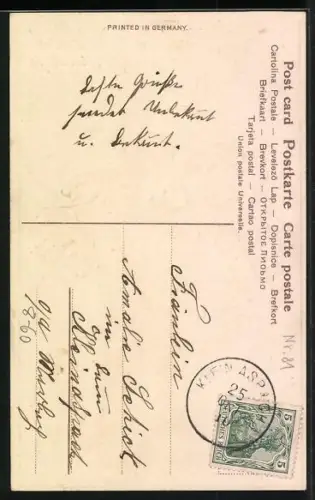 PRINTED IN GERMANY.
Post card Postkarte Carte postale
Cartolina Postale – Levelező Lap – Dopisnice – Brefkort
Briefkaart – Brevkort – ОТКРЫТОЕ ПИСЬМО
Tarjeta postal – Cartao postal
Union postale Universelle.
Grüße
sendet Unbekant
u. Bekant.
Nr. 81
Fräulein
Amalie Schick
in
Kleinaspach
o/a Marbach
KLEIN ASPACH
25
5 5